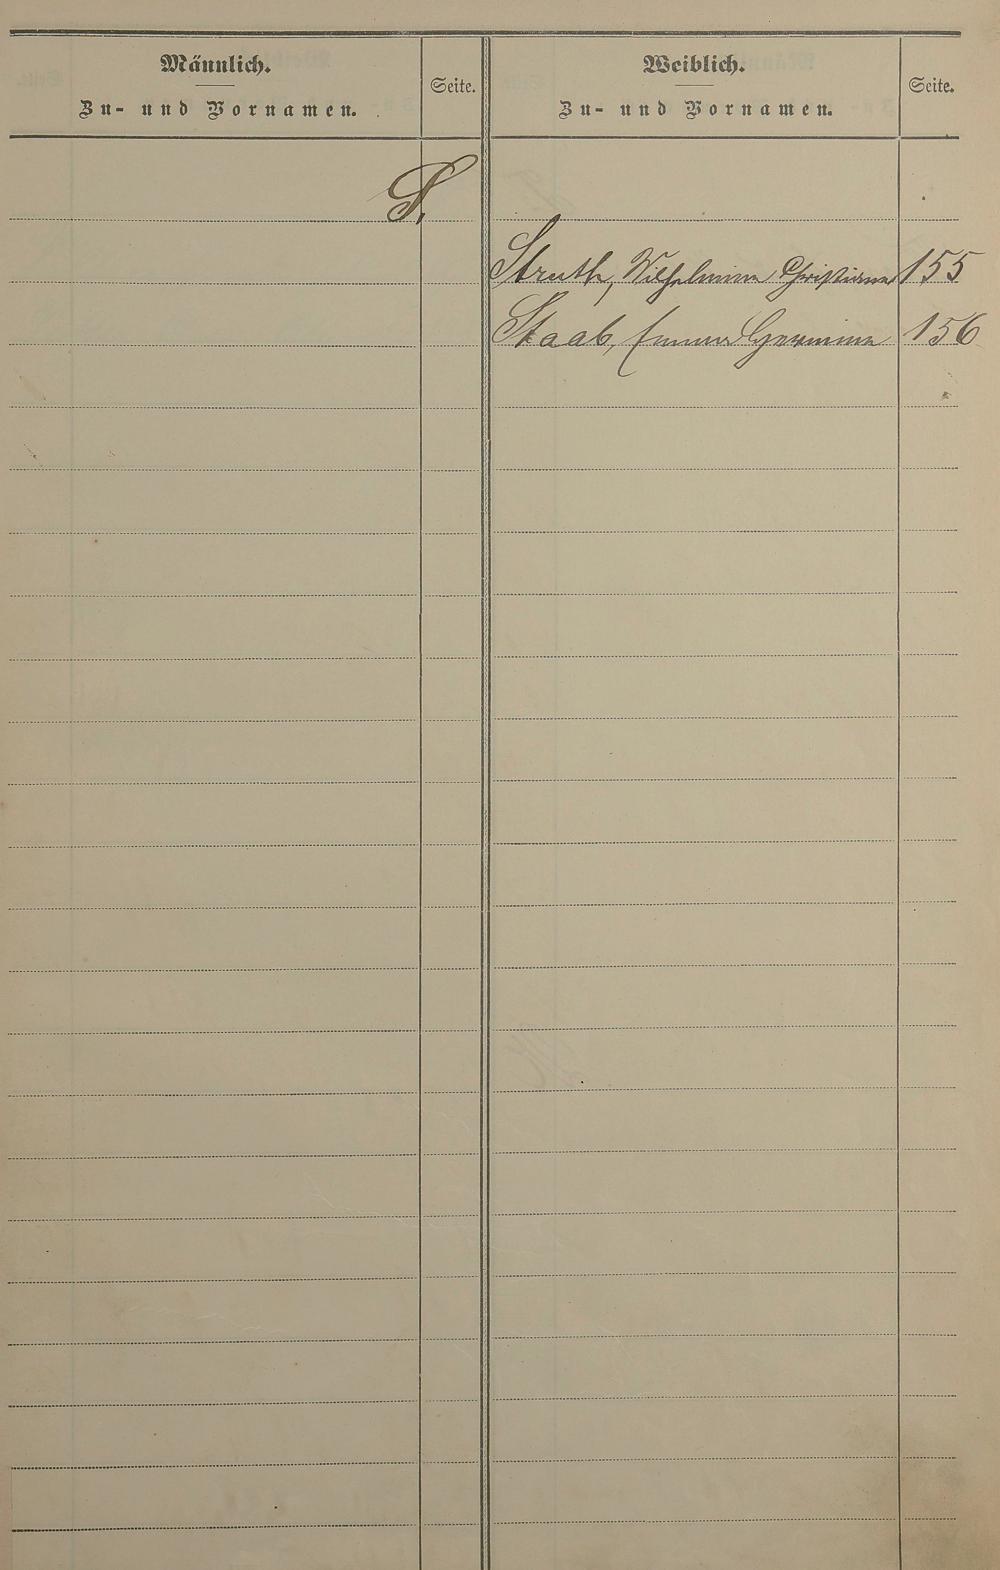 Männlich.
Zu- und Vornamen.
Seite.
Weiblich.
Zu- und Vornamen.
Seite.
S.
Struth, Wilhelmine Christiane 155
Staab, Emma Hermine 156